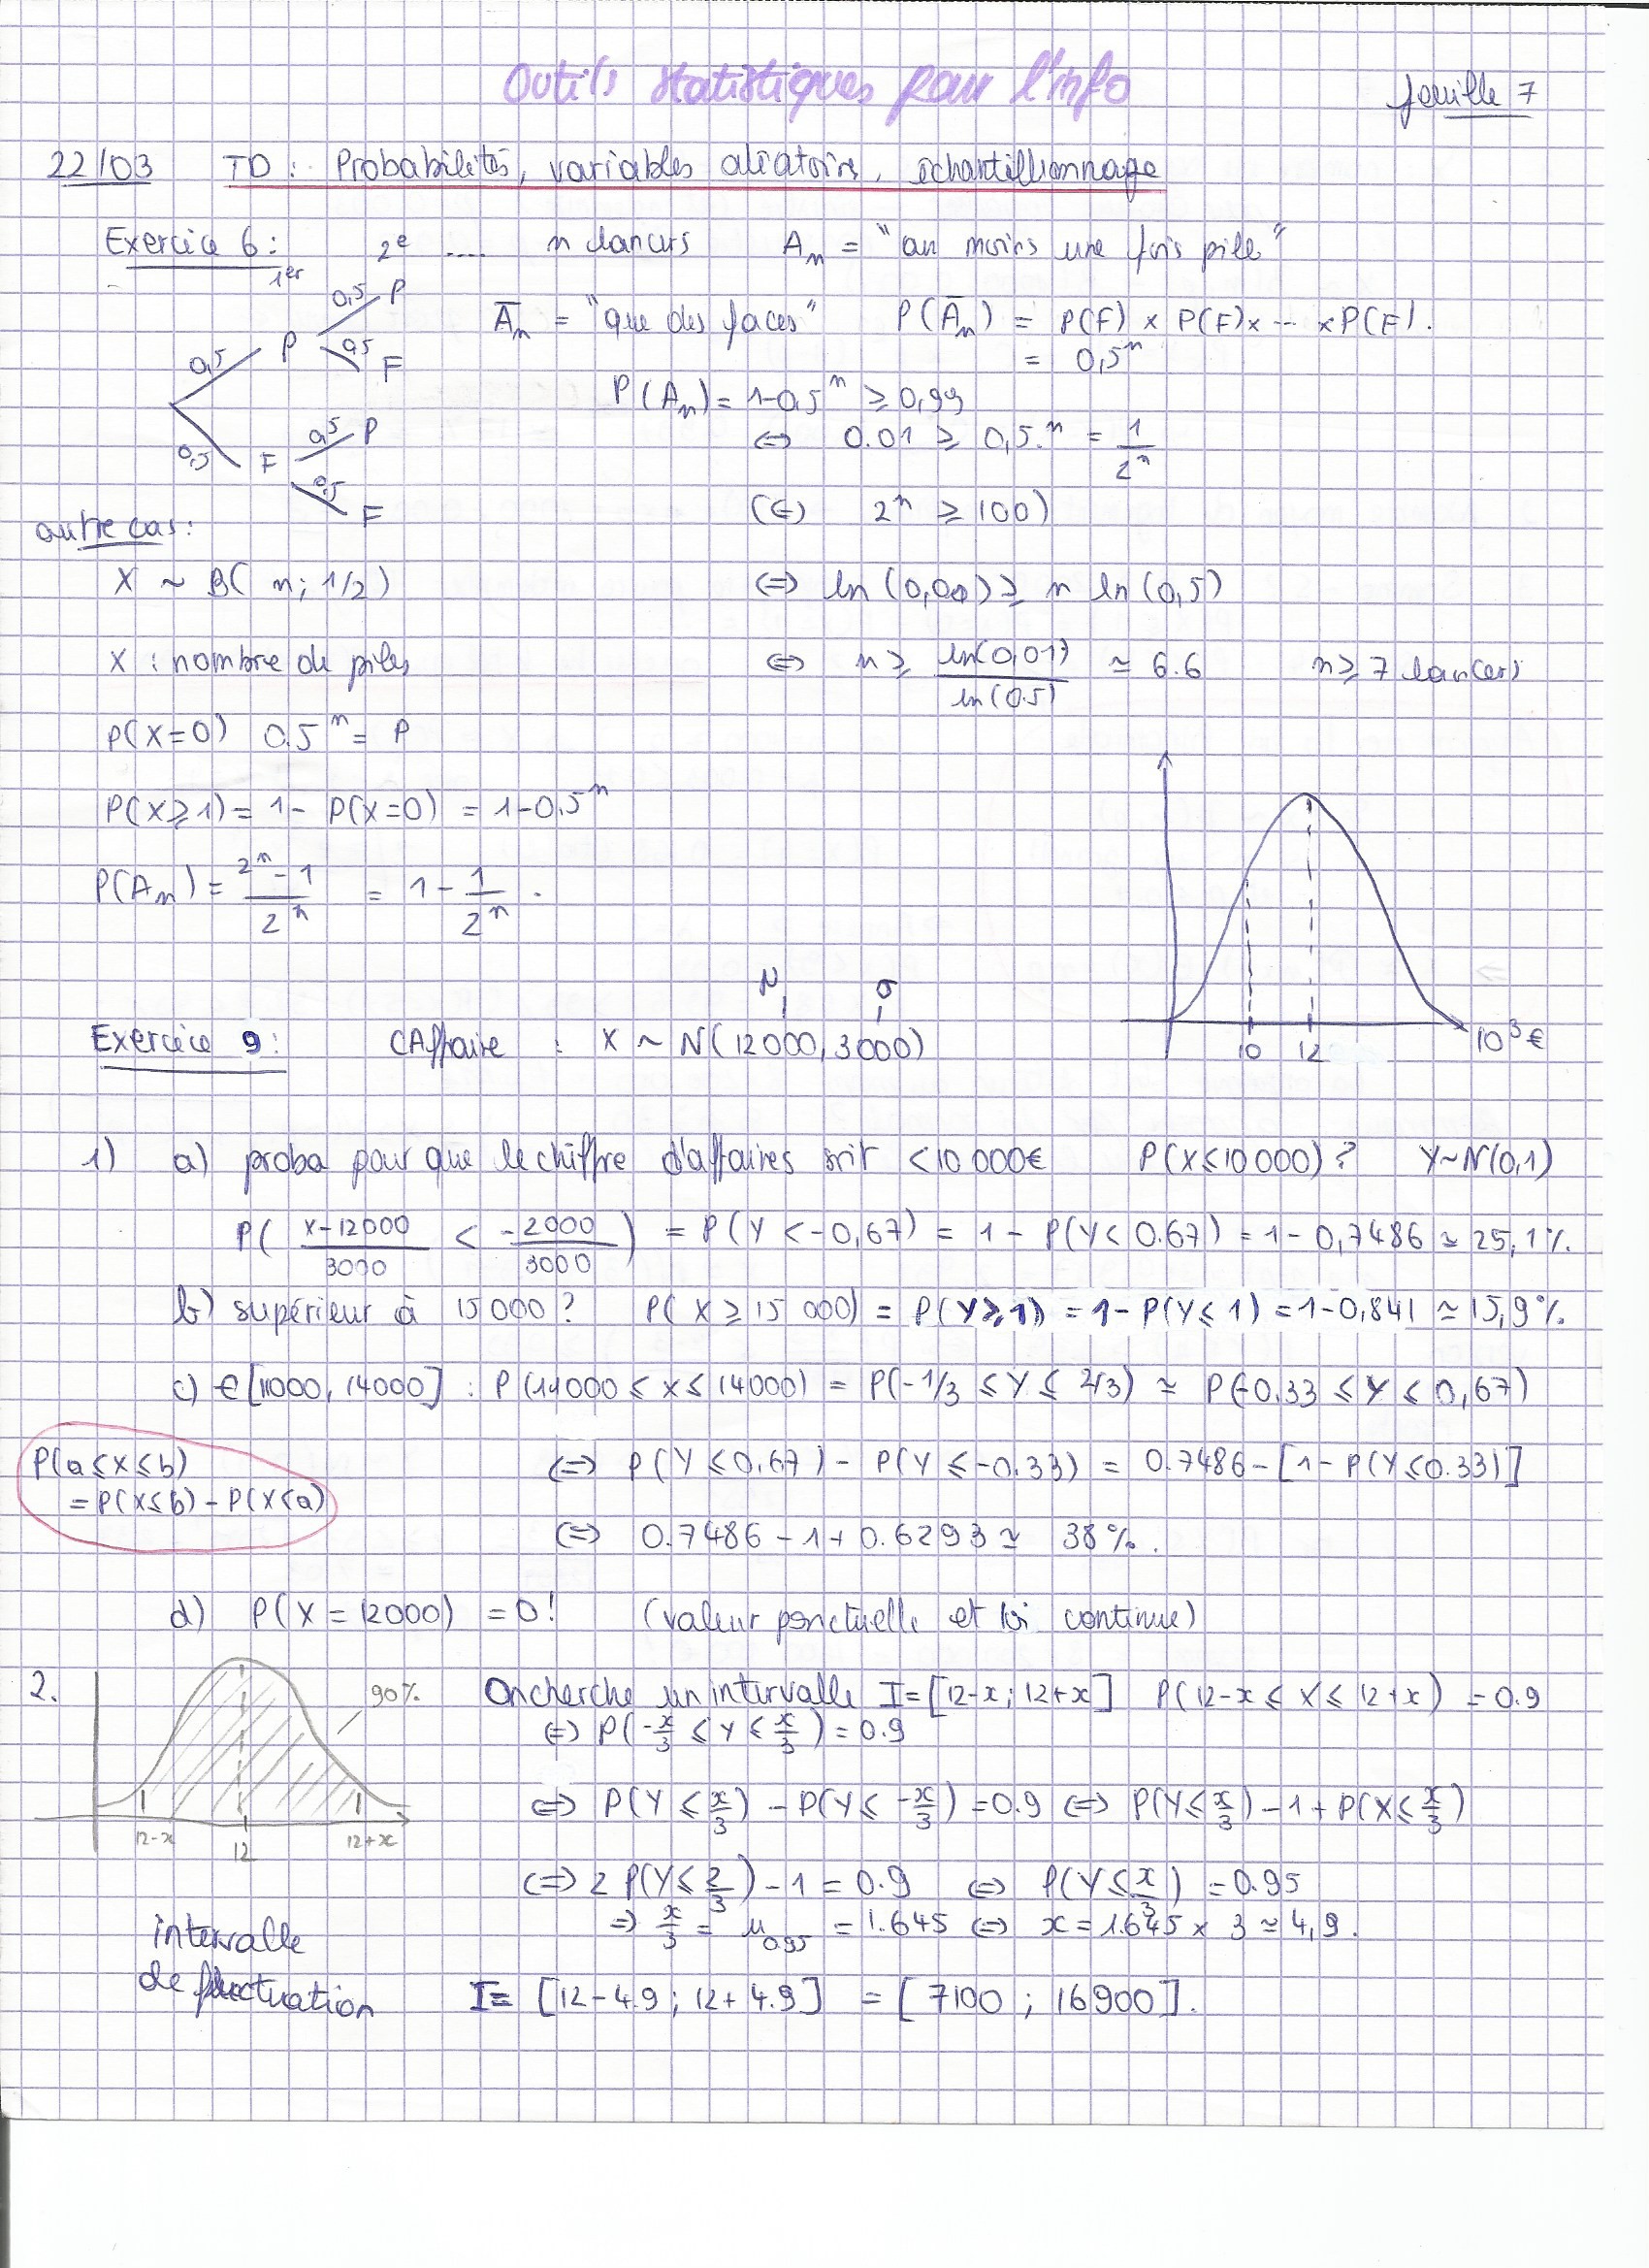 Outils statistiques pour l'info
feuille 7
22/03 TD : Probabilités, variables aléatoires, échantillionnage
Exercice 6 : 1er 2e .... n lancers An = "au moins une fois pile"
0,5 P 0,5 P 0,5 F
0,5 F 0,5 P 0,5 F
A̅n = "que des faces" P(A̅n) = P(F) x P(F) x ... x P(F).
= 0,5^n
P(An) = 1-0,5^n ≥ 0,99
⇔ 0.01 ≥ 0,5.^n = 1/2^n
(⇔ 2^n ≥ 100)
autre cas :
X ~ B( n ; 1/2 )
⇔ ln (0,00) ≥ n ln (0,5)
X : nombre de piles
⇔ n ≥ ln(0,01)/ln(0.5) ≃ 6.6 n ≥ 7 lancers
P(X=0) 0.5^n = P
P(X≥1) = 1 - P(X=0) = 1-0.5^n
P(An) = (2^n - 1)/2^n = 1 - 1/2^n .
10 12 10³€
N σ
Exercice 9 : CAffaire : X ~ N(12000, 3000)
1) a) proba pour que le chiffre d'affaires soit <10 000€ P(X≤10 000) ? Y~N(0,1)
P( (X-12000)/3000 < -2000/3000 ) = P(Y < -0,67) = 1 - P(Y< 0.67) = 1 - 0,7486 ≃ 25,1%.
b) supérieur à 15 000 ? P( X ≥ 15 000) = P(Y≥1) = 1-P(Y≤1) = 1-0,841 ≃ 15,9%.
c) ∈ [11000, 14000] : P(11000 ≤ X ≤ 14000) = P(-1/3 ≤ Y ≤ 2/3) ≃ P(-0.33 ≤ Y ≤ 0,67)
P(a≤X≤b)
= P(X≤b) - P(X≤a)
⇔ P(Y ≤ 0,67) - P(Y ≤ -0.33) = 0.7486 - [1 - P(Y≤0.33)]
⇔ 0.7486 - 1 + 0.6293 ≃ 38%.
d) P(X = 12000) = 0! (valeur ponctuelle et loi continue)
2. 90%
12-x 12 12+x
On cherche un intervalle I = [12-x ; 12+x] P(12-x ≤ X ≤ 12+x) = 0.9
⇔ P(-x/3 ≤ Y ≤ x/3) = 0.9
⇔ P(Y ≤ x/3) - P(Y ≤ -x/3) = 0.9 ⇔ P(Y≤ x/3) - 1 + P(X≤ x/3)
⇔ 2 P(Y≤ 2/3) - 1 = 0.9 ⇔ P(Y≤ x/3) = 0.95
⇒ x/3 = μ0.95 = 1.645 ⇔ x = 1.645 x 3 ≃ 4,9.
intervalle
de fluctuation
I = [12-4.9 ; 12+4.9] = [7100 ; 16900].